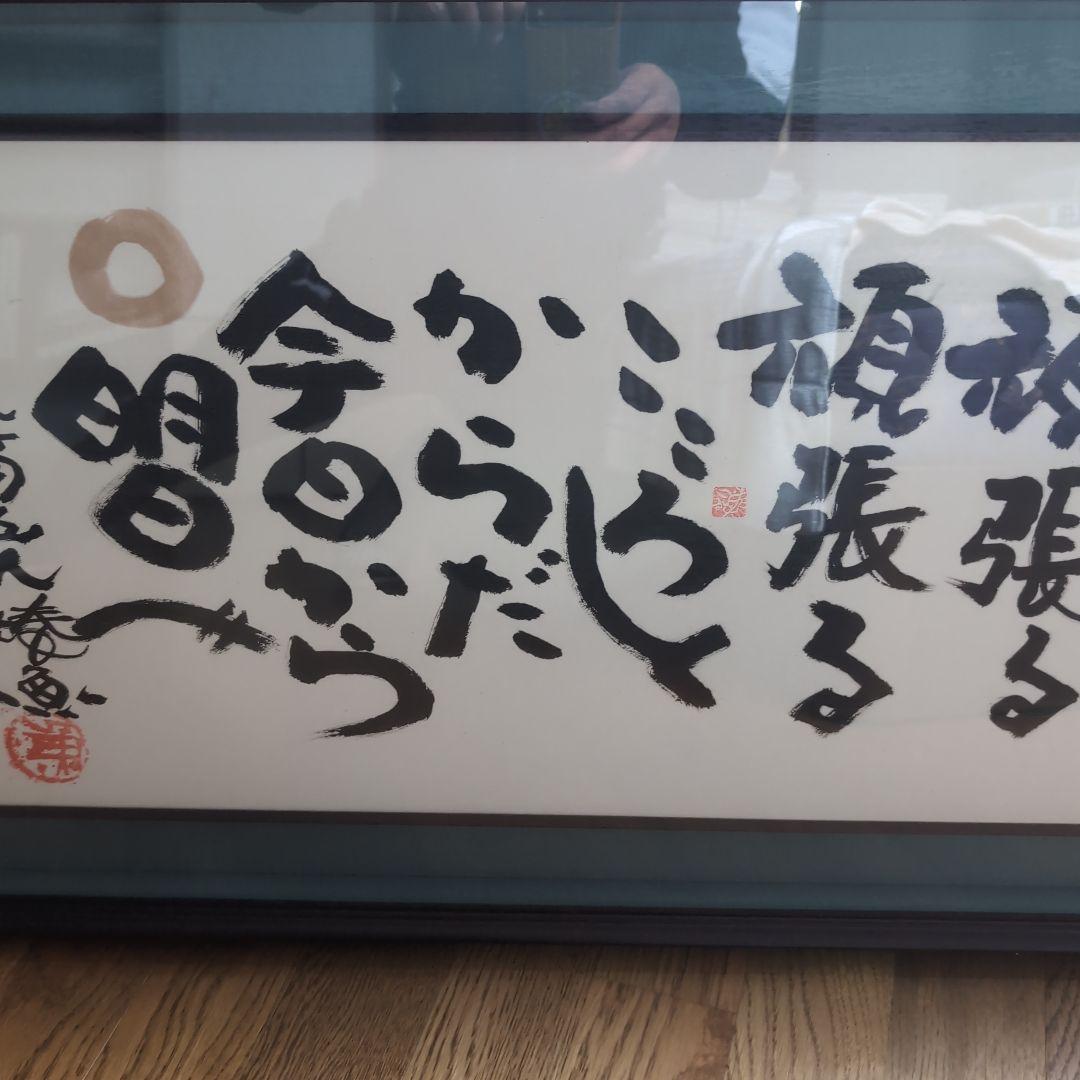 頑張る
頑張る
こころと
からだ
今日から
明日へ